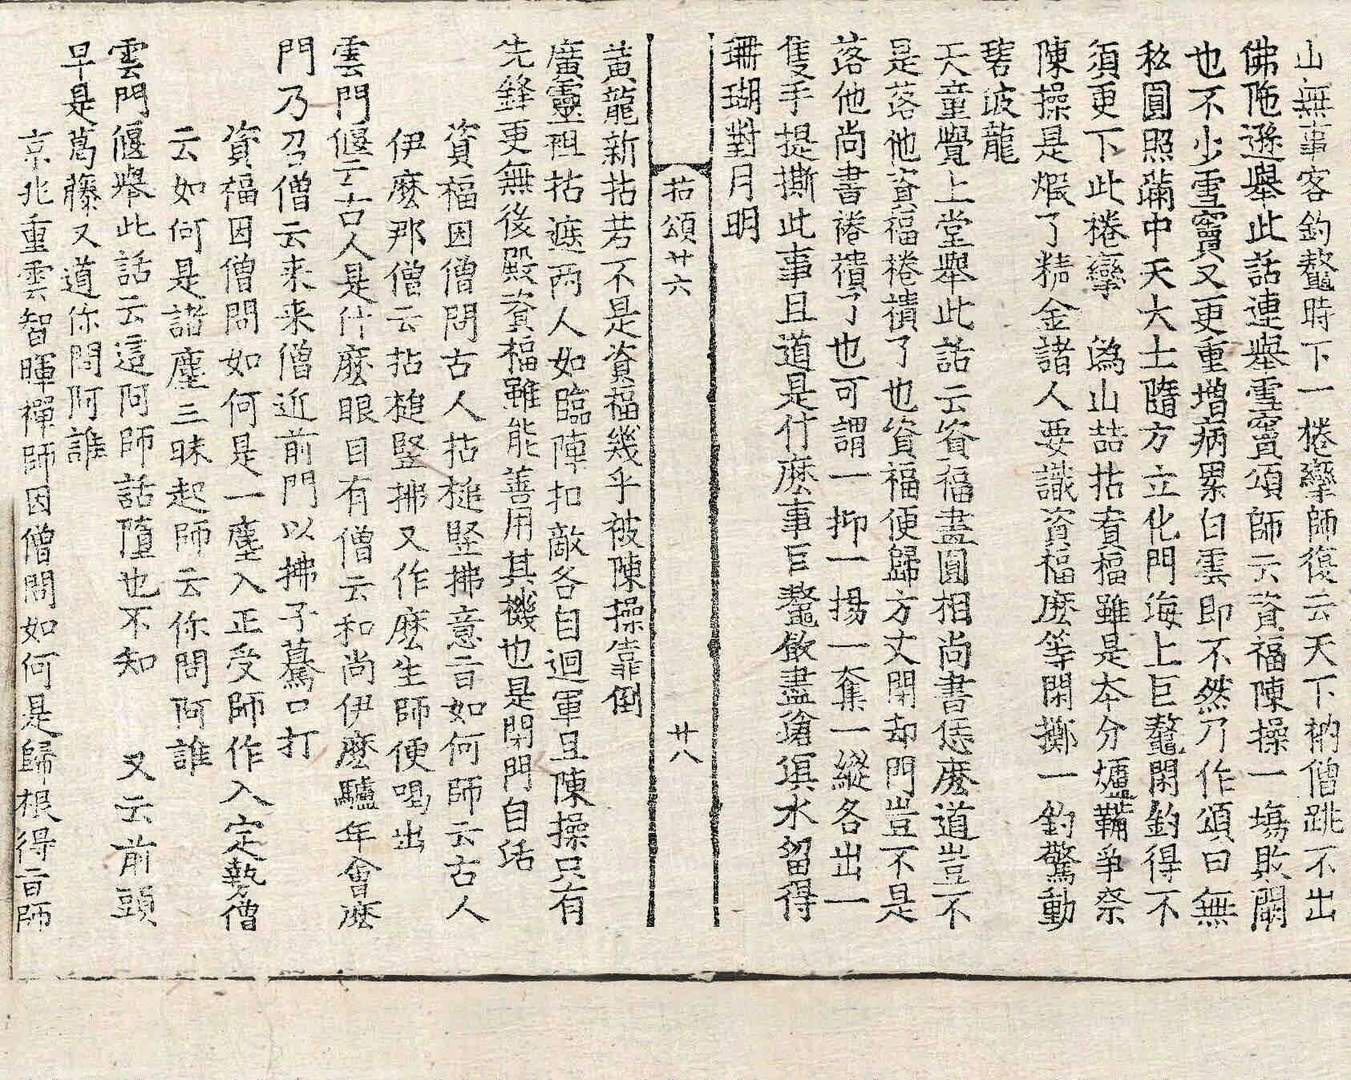 山無事客釣鼇時下一棬攣師復云天下衲僧跳不出
佛陁遜舉此話連舉雪竇頌師云資福陳操一場敗闕
也不少雪竇又更重增病累白雲即不然乃作頌曰無
私圓照滿中天大士隨方立化門海上巨鼇閑釣得不
須更下此棬攣　溈山喆拈資福雖是夲分爐鞴爭柰
陳操是煆了精金諸人要識資福麽等閑擲一釣驚動
碧波龍
天童覺上堂舉此話云資福畫圓相尚書恁麽道豈不
是落他資福棬襀了也資福便歸方丈閉却門豈不是
落他尚書棬襀了也可謂一抑一揚一奪一縱各出一
隻手提撕此事且道是什麽事巨鼇飲盡滄溟水留得
珊瑚對月明
拈頌廿六　廿八
黃龍新拈若不是資福幾乎被陳操靠倒
廣靈祖拈遮兩人如臨陣扣敵各自迴軍且陳操只有
先鋒更無後殿資福雖能善用其機也是閉門自活
資福因僧問古人拈槌竪拂意旨如何師云古人
伊麽那僧云拈槌竪拂又作麽生師便喝出
雲門偃云古人是什麽眼目有僧云和尚伊麽驢年會麽
門乃召僧云来来僧近前門以拂子驀口打
資福因僧問如何是一塵入正受師作入定勢僧
云如何是諸塵三昧起師云你問阿誰
雲門偃舉此話云這阿師話墮也不知　又云前頭
早是葛藤又道你問阿誰
京兆重雲智暉禪師因僧問如何是歸根得旨師